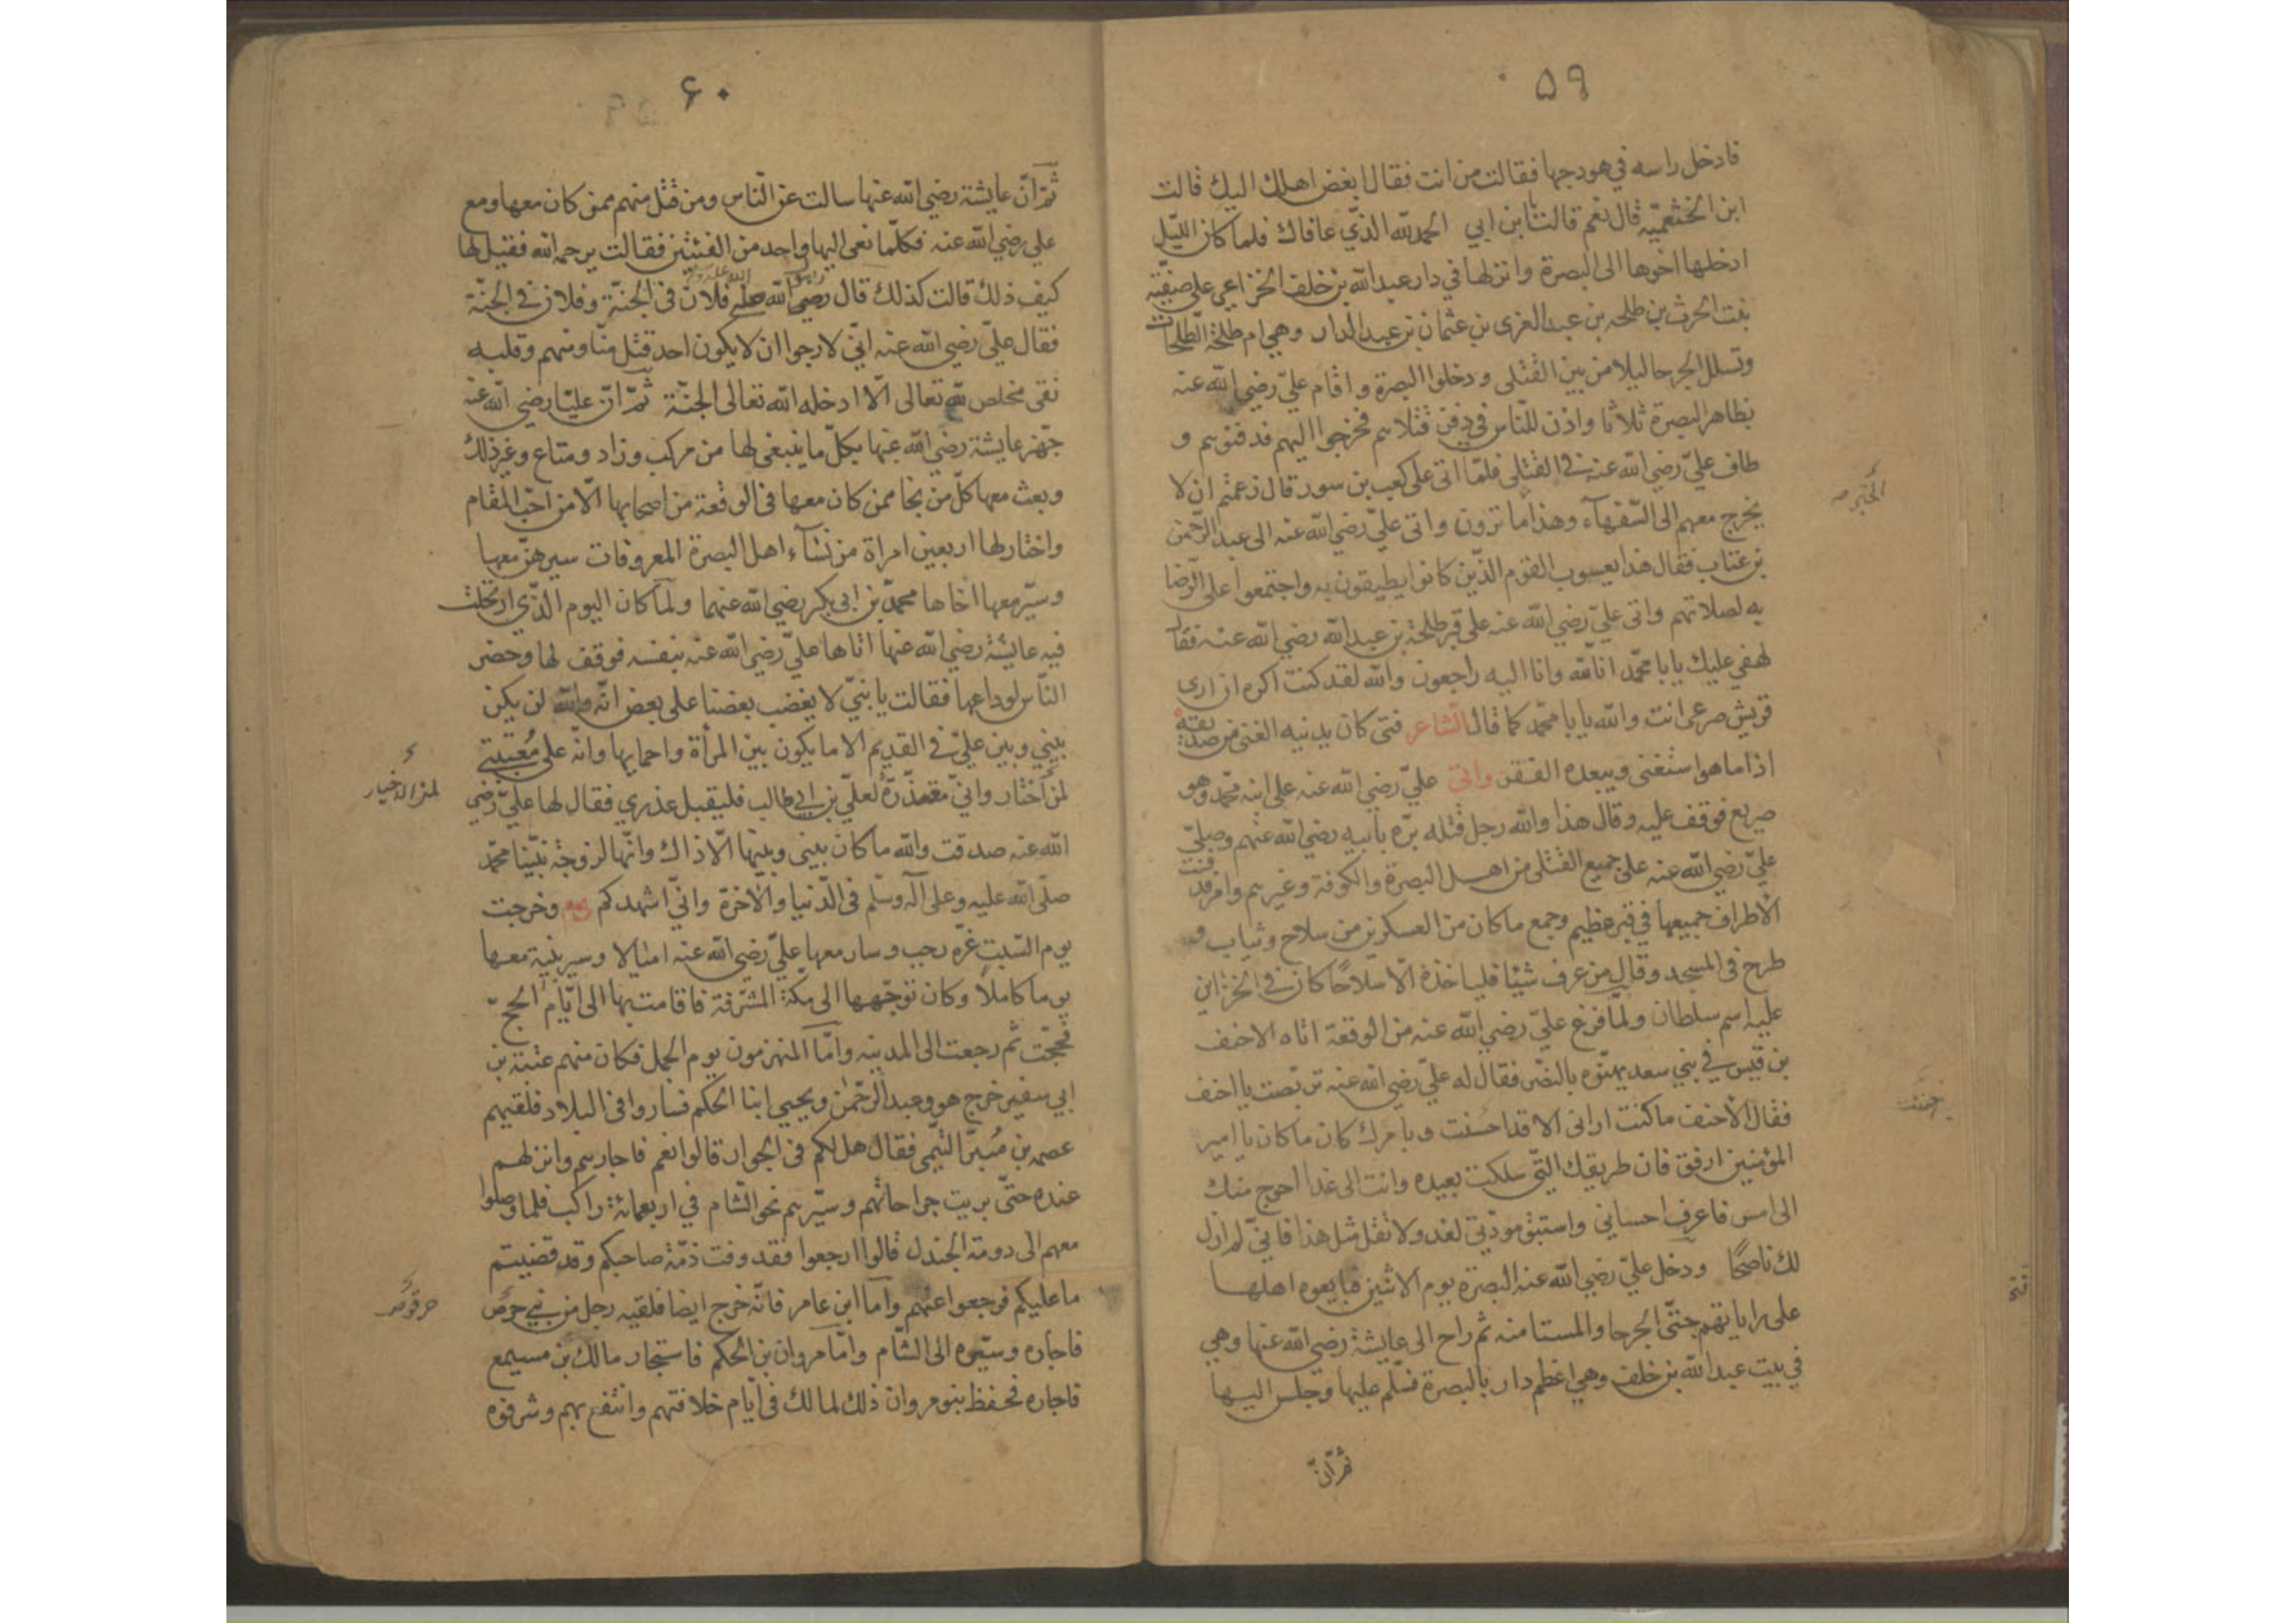 ٥٩
فادخل راسه في هودجها فقالت من انت فقال ابغض اهلك اليك قالت
ابن الخثعميّه قال نعم قالت يا بن ابي الحمد لله الذّي عافاك فلما كان اللّيل
ادخلها اخوها الى البصرة وانزلها في دار عبد الله بن خلف الخزاعي على صفيّة
بنت الحرث بن طلحه بن عبد العزى بن عثمان بن عبد الدار وهي ام طلحة الطّلحات
وتسلل الجرحا ليلا من بين القتلى ودخلوا البصرة واقام عليّ رضي الله عنه
بظاهر البصرة ثلاثا واذن للنّاس في دفن قتلاهم فخرجوا اليهم فدفنوهم و
طاف عليّ رضي الله عنه في القتلى فلمّا اتى على كعب بن سور قال زعمتم ان لا
يخرج معهم الى السّفهآء وهذا ما ترون واتى عليّ رضي الله عنه الى عبد الرّحمن
بن عتاب فقال هذا يعسوب القوم الذّين كانوا يطيقون به واجتمعوا على الرّضا
به لصلاتهم واتى عليّ رضي الله عنه على قبر طلحة بن عبد الله رضي الله عنه فقال
لهفي عليك يا با محمّد انا لله وانا اليه راجعون والله لقد كنت اكره ان ارى
قريش صرعى انت والله يا با محمّد كما قال الشّاعر فتى كان يدنيه الغنى من صديقه
اذا ما هو استغنى ويبعده الفقر واتى عليّ رضي الله عنه على ابنه محمّد وهو
صريع فوقف عليه وقال هذا والله رجل قتله برّه بابيه رضي الله عنهم وصلّى
عليّ رضي الله عنه على جميع القتلى من اهل البصرة والكوفة وغيرهم وامر فدفنت
الاطراف جميعها في قبر عظيم وجمع ما كان من العسكرين من سلاح وثياب و
طرح في المسجد وقال من عرف شيئا فلياخذه الّا سلاحًا كان في الخزاين
عليه اسم سلطان ولمّا فرغ عليّ رضي الله عنه من الوقعة اتاه الاحنف
بن قيس في بني سعد يهنّوه بالنصر فقال له عليّ رضي الله عنه تربّصت يا احنف
فقال الاحنف ما كنت ارانى الا قد احسنت وبامرك كان ما كان يا امير
المؤمنين ارفق فان طريقك التّي سلكت بعيده وانت الى غدا احوج منك
الى امس فاعرف احساني واستبق مودّتي لغد ولا تقل مثل هذا فاني لم ازل
لك ناصحًا ودخل عليّ رضي الله عنه البصرة يوم الاثنين فبايعوه اهلها
على راياتهم حتّى الجرحا والمستامنه ثم راح الى عايشة رضي الله عنها وهي
في بيت عبد الله بن خلف وهي اعظم دار بالبصرة فسلّم عليها وجلس اليها
ثم انّ
٦٠
ثمّ انّ عايشة رضي الله عنها سالت عن النّاس ومن قتل منهم ممن كان معها ومع
علي رضي الله عنه فكلّما نعى اليها واحد من الفئتين فقالت يرحمه الله فقيل لها
كيف ذلك قالت كذلك قال رسول الله صلى الله عليه وسلم فلان في الجنّة وفلان في الجنّة
فقال عليّ رضي الله عنه انّي لارجوا ان لا يكون احد قتل منّا ومنهم وقلبه
نقى مخلص لله تعالى الّا ادخله الله تعالى الجنّة ثمّ انّ عليّا رضي الله عنه
جهّز عايشة رضي الله عنها بكلّ ما ينبغي لها من مركب وزاد ومتاع وغير ذلك
وبعث معها كلّ من نجا ممن كان معها في الوقعة من اصحابها الّا من احبّ المقام
واختار لها اربعين امراة من نسآء اهل البصرة المعروفات سيرهنّ معها
وسيّر معها اخاها محمّد بن ابي بكر رضي الله عنهما ولمّا كان اليوم الذّي ارتحلت
فيه عايشة رضي الله عنها اتاها عليّ رضي الله عنه بنفسه فوقف لها وحضر
النّاس لوداعها فقالت يا بنيّ لا يغضب بعضنا على بعض انّه والله لن يكن
بيني وبين عليّ في القديم الا ما يكون بين المرأة واحمايها وانّه على مُعتبتي
لمن اختار وانيّ معتذّرة لعليّ بن ابي طالب فليقبل عذري فقال لها عليّ رضي
لمن الاخيار
الله عنه صدقت والله ما كان بيني وبينها الّا ذاك وانّها لزوجة نبيّنا محمّد
صلّى الله عليه وعلى آله وسلّم في الدّنيا والآخرة وانيّ اشهدكم وخرجت
يوم السّبت غرّه رجب وسار معها عليّ رضي الله عنه اميالا وسير بنيه معها
يوما كاملاً وكان توجّهها الى مكّة المشرّفة فاقامت بها الى ايّام الحجّ
فحجّت ثم رجعت الى المدينه وامّا المنهزمون يوم الجمل فكان منهم عتبة بن
ابي سفين خرج هو وعبد الرّحمن ويحيى ابنا الحكم فساروا في البلاد فلقيهم
عصمه بن مُبيرّ التّيمي فقال هل لكم في الجوار قالوا نعم فاجارهم وانزلهم
عنده حتّى بريت جراحاتهم وسيّرهم نحو الشّام في اربعمائة راكب فلما وصلوا
معهم الى دومة الجندل قالوا ارجعوا فقد وفت ذمّة صاحبكم وقد قضيتم
ما عليكم فرجعوا عنهم وامّا ابن عامر فانّه خرج ايضا فلقيه رجل من بني حرقوص
حرقوص
فاجاره وسيّره الى الشّام وامّا مروان بن الحكم فاستجار مالك بن مسيمع
فاجاره فحفظ بنو مروان ذلك لمالك في ايّام خلافتهم وانتفع بهم وشرفوه